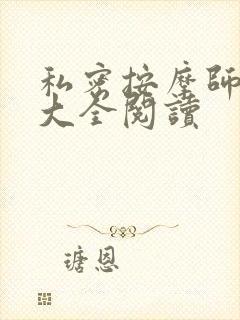 私密按摩師
大全閱讀
瑭恩